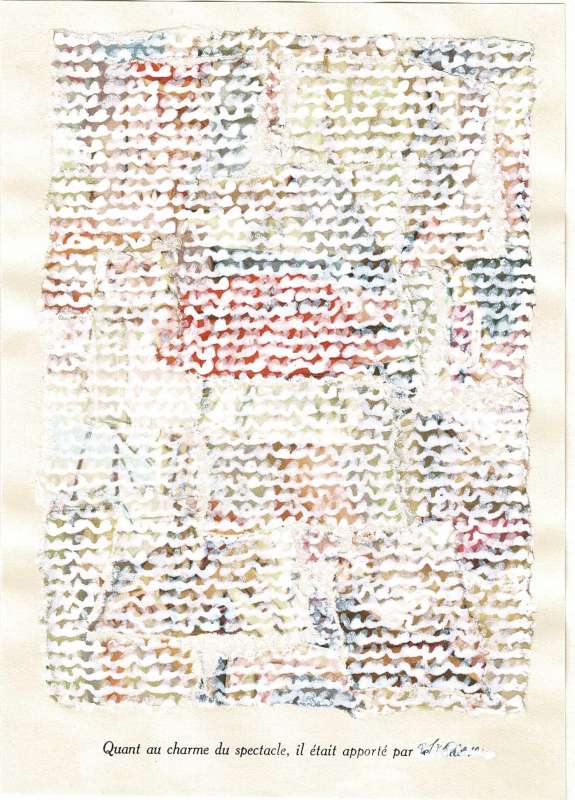 Quant au charme du spectacle, il était apporté par